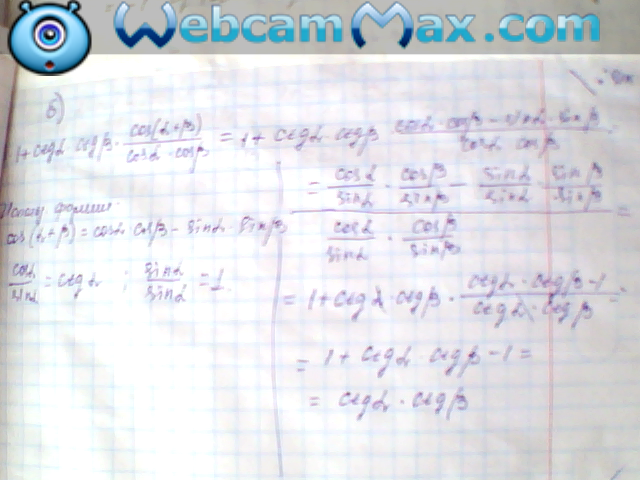 WebcamMax.com
б)
1+ctgα ctgβ · cos(α+β)/cosα·cosβ = 1+ ctgα ctgβ cosα·cosβ - sinα·sinβ/cosα cosβ
= cosα/sinα · cosβ/sinβ - sinα/sinα · sinβ/sinβ / cosα/sinα · cosβ/sinβ =
формул.
cos(α+β)=cosα·cosβ - sinα·sinβ
cosα/sinα = ctgα ; sinα/sinα = 1.
= 1+ctgα·ctgβ · ctgα·ctgβ-1/ctgα·ctgβ =
= 1+ctgα·ctgβ-1 =
= ctgα·ctgβ